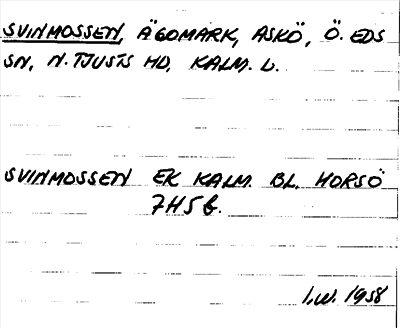 SVINMOSSEN, ÄGOMARK, ASKÖ, Ö. EDS
SN, N. TJUSTS HD, KALM. L.
SVINMOSSEN EK KALM. BL. HORSÖ
7H5b.
I.W. 1958